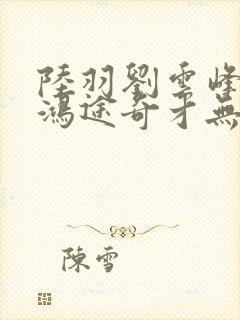 陸羽劉雲峰
鴻途奇才無
陳雪